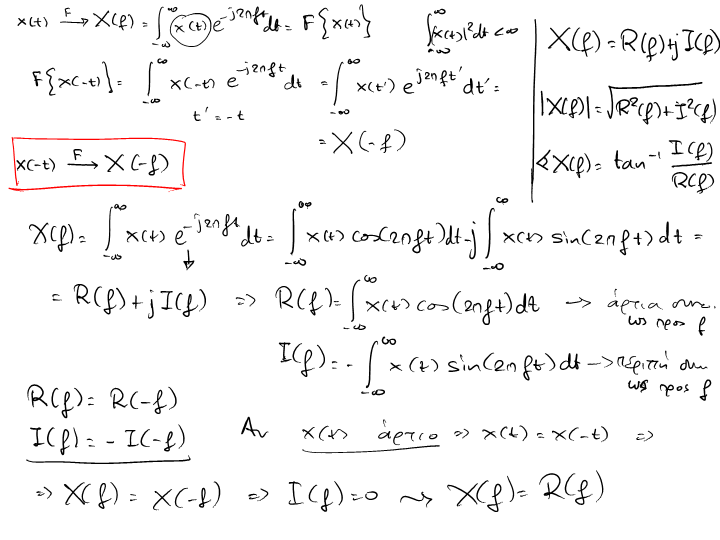 x(t) F→ X(f) = ∫_{-∞}^{∞} x(t) e^{-j2πft} dt = F{x(t)}
∫_{-∞}^{∞} |x(t)|² dt < ∞
F{x(-t)} = ∫_{-∞}^{∞} x(-t) e^{-j2πft} dt = ∫_{-∞}^{∞} x(t') e^{j2πft'} dt' =
t' = -t
= X(-f)
x(-t) F→ X(-f)
X(f) = R(f) + j I(f)
|X(f)| = √(R²(f) + I²(f))
∢X(f) = tan⁻¹ I(f)/R(f)
X(f) = ∫_{-∞}^{∞} x(t) e^{-j2πft} dt = ∫_{-∞}^{∞} x(t) cos(2πft) dt - j ∫_{-∞}^{∞} x(t) sin(2πft) dt =
= R(f) + j I(f) => R(f) = ∫_{-∞}^{∞} x(t) cos(2πft) dt → άρτια συν.
ως προς f
I(f) = - ∫_{-∞}^{∞} x(t) sin(2πft) dt → περιττή συν
ως προς f
R(f) = R(-f)
I(f) = - I(-f)
Αν x(t) άρτιο => x(t) = x(-t) =>
=> X(f) = X(-f) => I(f) = 0 ⇝ X(f) = R(f)